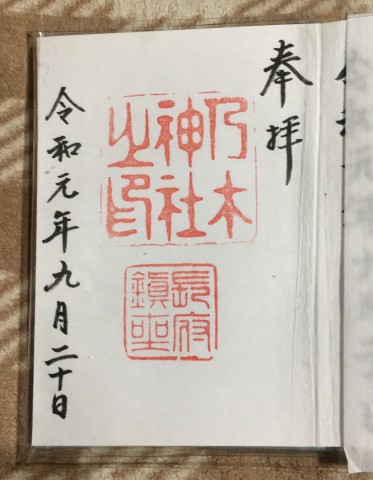 奉拝
乃木
神社
之印
長府
鎮座
令和元年九月二十日